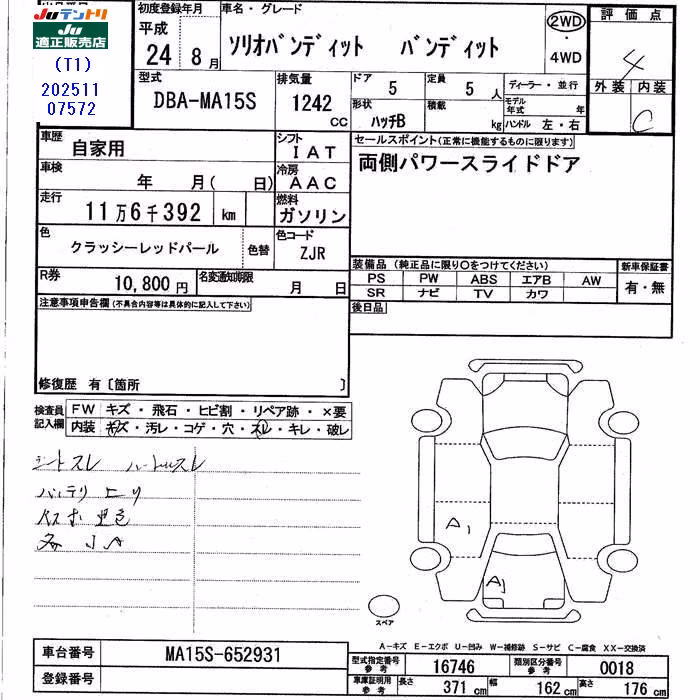 Juテントリ
Ju
適正販売店
(T1)
202511
07572
初度登録年月
平成
24 8月
車名・グレード
ソリオバンディット バンディット
2WD
・
4WD
評価点
4
外装 内装
C
型式
DBA-MA15S
排気量
1242 CC
ドア
5
定員
5 人
形状
ハッチB
積載
kg
ディーラー・並行
モデル年式 年
ハンドル 左・右
車歴
自家用
シフト
IAT
セールスポイント(正常に機能するものに限ります)
両側パワースライドドア
車検
年 月( 日)
冷房
AAC
走行
11万6千392 km
燃料
ガソリン
色
クラッシーレッドパール
色替
色コード
ZJR
装備品 (純正品に限り○をつけてください)
新車保証書
PS PW ABS エアB AW
SR ナビ TV カワ
有・無
R券
10,800円
名変通知期限
月 日
後日品
注意事項申告欄(不具合内容等は具体的に記入して下さい)
修復歴 有〔箇所 〕
検査員記入欄
FW キズ・飛石・ヒビ割・リペア跡・×要
内装 キズ・汚レ・コゲ・穴・スレ・キレ・破レ
シートスレ ハンドルスレ
バッテリ
A1
A1
スペア
A-キズ E-エクボ U-凹み W-補修跡 S-サビ C-腐食 XX-交換済
車台番号
MA15S-652931
登録番号
型式指定番号参考
16746
類別区分番号参考
0018
車庫証明用参考
長さ 371 cm 幅 162 cm 高さ 176 cm